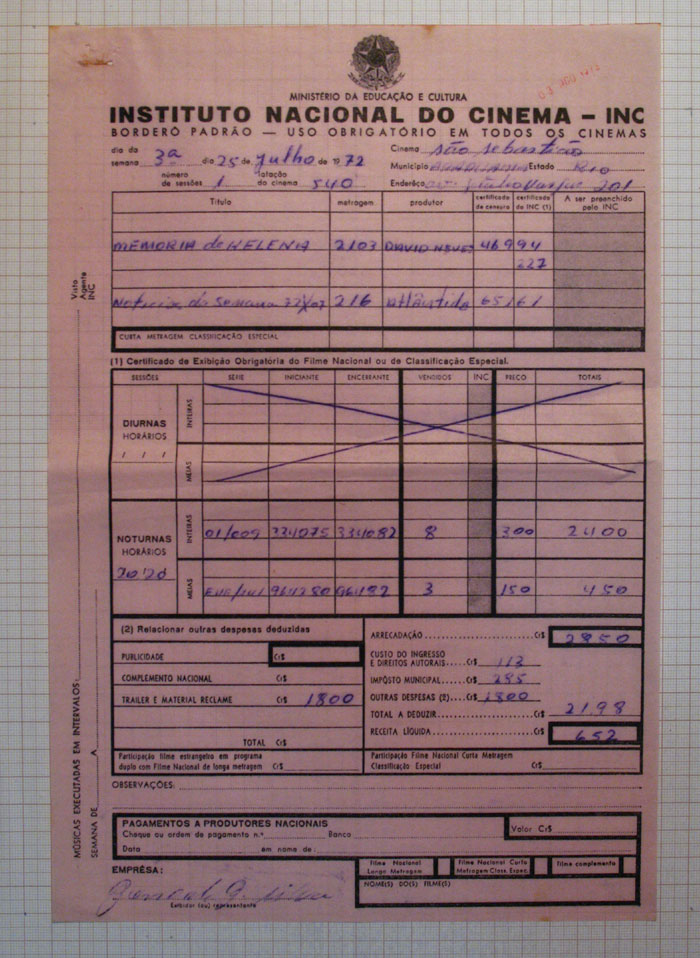 MINISTÉRIO DA EDUCAÇÃO E CULTURA
INSTITUTO NACIONAL DO CINEMA – INC
BORDERÔ PADRÃO — USO OBRIGATÓRIO EM TODOS OS CINEMAS
dia da semana 3ª dia 25 de Julho de 1972 Cinema São Sebastião
Município Estado Rio
número de sessões 1 lotação do cinema 540 Endereço 201
Título metragem produtor certificado de censura certificado do INC (1) A ser preenchido pelo INC
MEMORIA de HELENA 2103 DAVID NEVES 46994
227
Noticias da Semana 72X07 216 Atlântida 65161
CURTA METRAGEM CLASSIFICAÇÃO ESPECIAL
(1) Certificado de Exibição Obrigatória do Filme Nacional ou de Classificação Especial.
SESSÕES SERIE INICIANTE ENCERRANTE VENDIDOS INC PREÇO TOTAIS
DIURNAS
HORÁRIOS
/ / /
INTEIRAS
MEIAS
NOTURNAS
HORÁRIOS
20'20
INTEIRAS 01/009 334075 334082 8 300 2400
MEIAS 964280 96482 3 150 450
(2) Relacionar outras despesas deduzidas
PUBLICIDADE Cr$
COMPLEMENTO NACIONAL Cr$
TRAILER E MATERIAL RECLAME Cr$ 1800
TOTAL Cr$
Participação filme estrangeiro em programa
duplo com Filme Nacional de longa metragem Cr$
ARRECADAÇÃO Cr$ 2850
CUSTO DO INGRESSO
E DIREITOS AUTORAIS Cr$ 113
IMPÔSTO MUNICIPAL Cr$ 285
OUTRAS DESPESAS (2) Cr$ 1800
TOTAL A DEDUZIR Cr$ 2198
RECEITA LÍQUIDA Cr$ 652
Participação Filme Nacional Curta Metragem
Classificação Especial Cr$
OBSERVAÇÕES:
PAGAMENTOS A PRODUTORES NACIONAIS
Cheque ou ordem de pagamento n.º Banco Valor Cr$
Data em nome de:
EMPRÊSA:
Exibidor (ou) representante
Filme Nacional Longa Metragem
Filme Nacional Curta Metragem Class. Espec.
Filme complemento
NOME(S) DO(S) FILME(S)
Visto Agente INC
MÚSICAS EXECUTADAS EM INTERVALOS:
SEMANA DE A